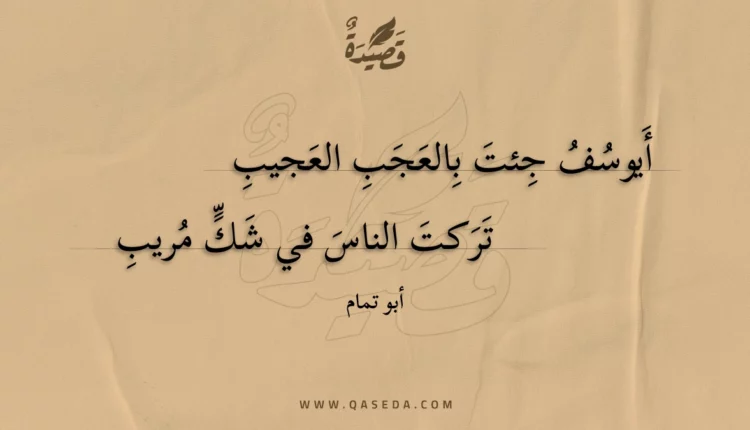 قَصِيْدَةٌ
أَيوسُفُ جِئتَ بِالعَجَبِ العَجيبِ
تَرَكتَ الناسَ في شَكٍّ مُريبِ
أبو تمام
WWW.QASEDA.COM